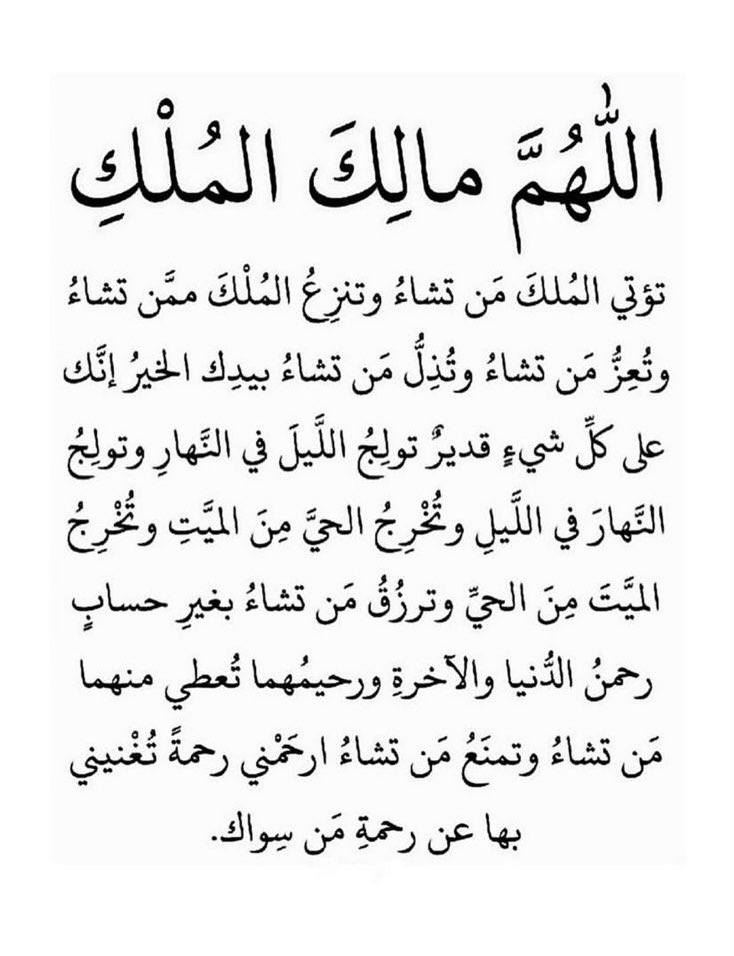 اللّٰهُمَّ مالِكَ المُلْكِ
تؤتي المُلكَ مَن تشاءُ وتنزِعُ المُلْكَ ممَّن تشاءُ
وتُعِزُّ مَن تشاءُ وتُذِلُّ مَن تشاءُ بيدِك الخيرُ إنَّك
على كلِّ شيءٍ قديرٌ تولِجُ اللَّيلَ في النَّهارِ وتولِجُ
النَّهارَ في اللَّيلِ وتُخْرِجُ الحيَّ مِنَ الميَّتِ وتُخْرِجُ
الميَّتَ مِنَ الحيِّ وترزُقُ مَن تشاءُ بغيرِ حسابٍ
رحمنُ الدُّنيا والآخرةِ ورحيمُهما تُعطي منهما
مَن تشاءُ وتمنَعُ مَن تشاءُ ارحَمْني رحمةً تُغْنيني
بها عن رحمةِ مَن سِواك.